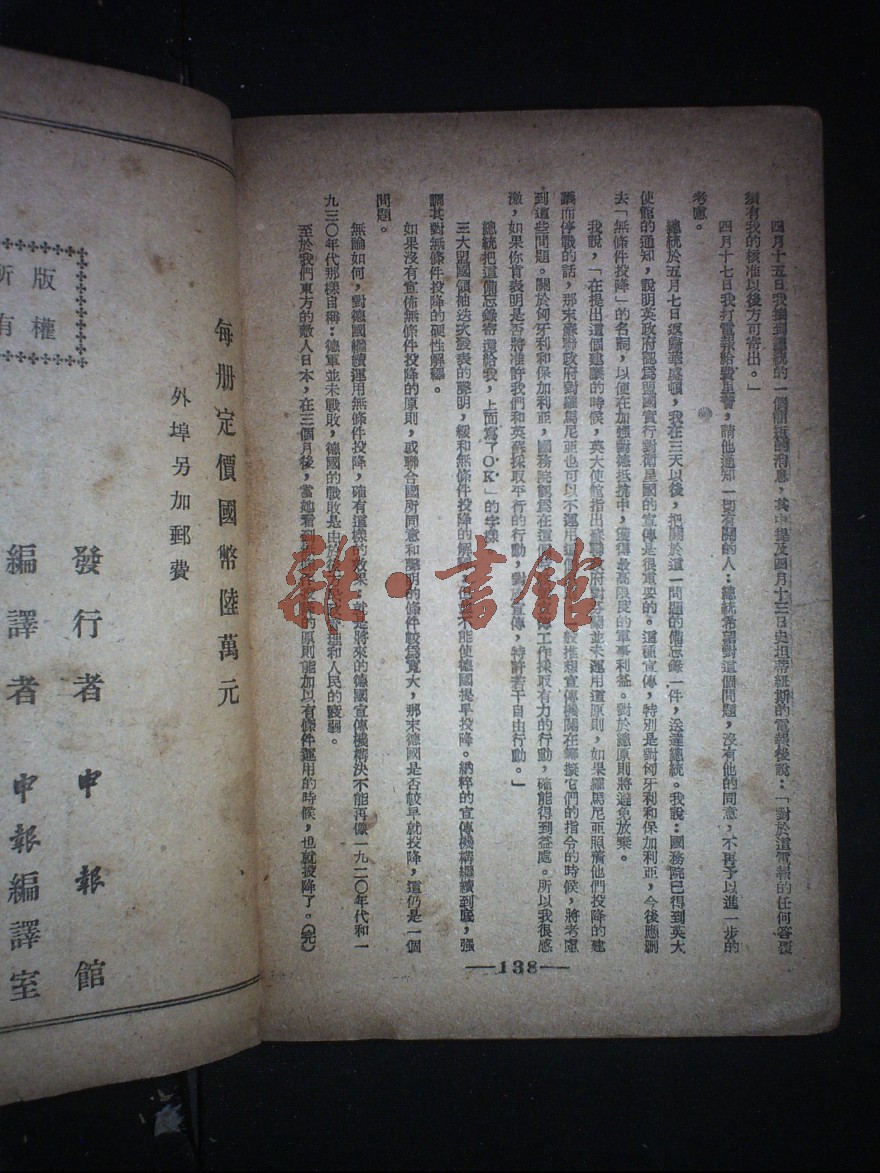 四月十五日我接到總統的一個簡短的消息，其中提及四月十三日史坦蒂紐斯的電報後說：「對於這電報的任何答覆
須有我的核准以後方可寄出。」
四月十七日我打電報給，請他通知一切有關的人：總統希望對這個問題，沒有他的同意，不再予以進一步的
考慮。
總統於五月七日返歸華盛頓，我在三天以後，把關於這一問題的備忘錄一件，送達總統。我說：國務院已得到英大
使館的通知，說明英政府認爲盟國實行對衛星國的宣傳是很重要的。這種宣傳，特別是對匈牙利和保加利亞，今後應刪
去「無條件投降」的名詞，以便在加強對德抵抗中，獲得最高限度的軍事利益。對於總原則將避免放棄。
我說，「在提出這個建議的時候，英大使館指出蘇聯政府對芬蘭並未運用這原則，如果羅馬尼亞照着他們投降的建
議而停戰的話，那末蘇聯政府對羅馬尼亞也可以不運用這個推想宣傳機關在籌擬它們的指令的時候，將考慮
到這些問題。關於匈牙利和保加利亞，國務院認爲在這工作採取有力的行動，確能得到益處。所以我很感
激，如果你肯表明是否將准許我們和英蘇採取平行的行動，對於宣傳，特許若干自由行動。」
總統把這備忘錄寄還給我，上面寫了O.K.」的字樣
三大盟國領袖迭次發表的聲明，緩和無條件投降的解釋，不能使德國提早投降。納粹的宣傳機構繼續到底，強
調其對無條件投降的硬性解釋。
如果沒有宣佈無條件投降的原則，或聯合國所同意和聲明的條件較爲寬大，那末德國是否較早就投降，這仍是一個
問題。
無論如何，對德國繼續運用無條件投降，確有這樣的效果，就是將來的德國宣傳機構決不能再像一九二〇年代和一
九三〇年代那樣自稱：德軍並未戰敗，德國的戰敗是由於後理和人民的疲弱。
至於我們東方的敵人日本，在三個月後，當她看到的原則能加以有條件運用的時候，也就投降了。（完）
—138—
版權
所有
每册定價國幣陸萬元
外埠另加郵費
發行者 申報館
編譯者 申報編譯室
雜·書館